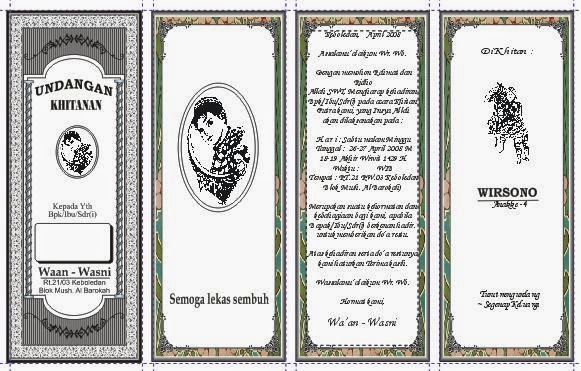 UNDANGAN
KHITANAN
Kepada Yth
Bpk/Ibu/Sdr(i)
Waan - Wasni
Rt.21/03 Keboledan
Blok Mush. Al Barokah
Semoga lekas sembuh
Keboledan, April 2008
Assalamu'alaikum Wr. Wb.
Dengan memohon Rahmat dan
Ridho
Allah SWT, Mengharap kehadiran
Bpk/Ibu/Sdr(i) pada acara Khitan
Putra kami, yang Insya Allah
akan dilaksanakan pada :
H a r i : Sabtu malam Minggu
Tanggal : 26-27 April 2008 M
18-19 Akhir 1429 H
Waktu : WIB
Tempat : RT.21 RW.03 Keboledan
Blok Mush. Al Barokah)
Merupakan suatu kehormatan dan
kebahagiaan bagi kami, apabila
Bapak/Ibu/Sdr(i) berkenan hadir,
untuk memberikan do'a restu.
Atas kehadiran serta do'a restunya
kami haturkan Terima kasih.
Wassalamu'alaikum Wr. Wb.
Hormat kami,
Wa'an - Wasni
Di Khitan :
WIRSONO
Anak ke - 4
Turut mengundang
~ Segenap Keluarga